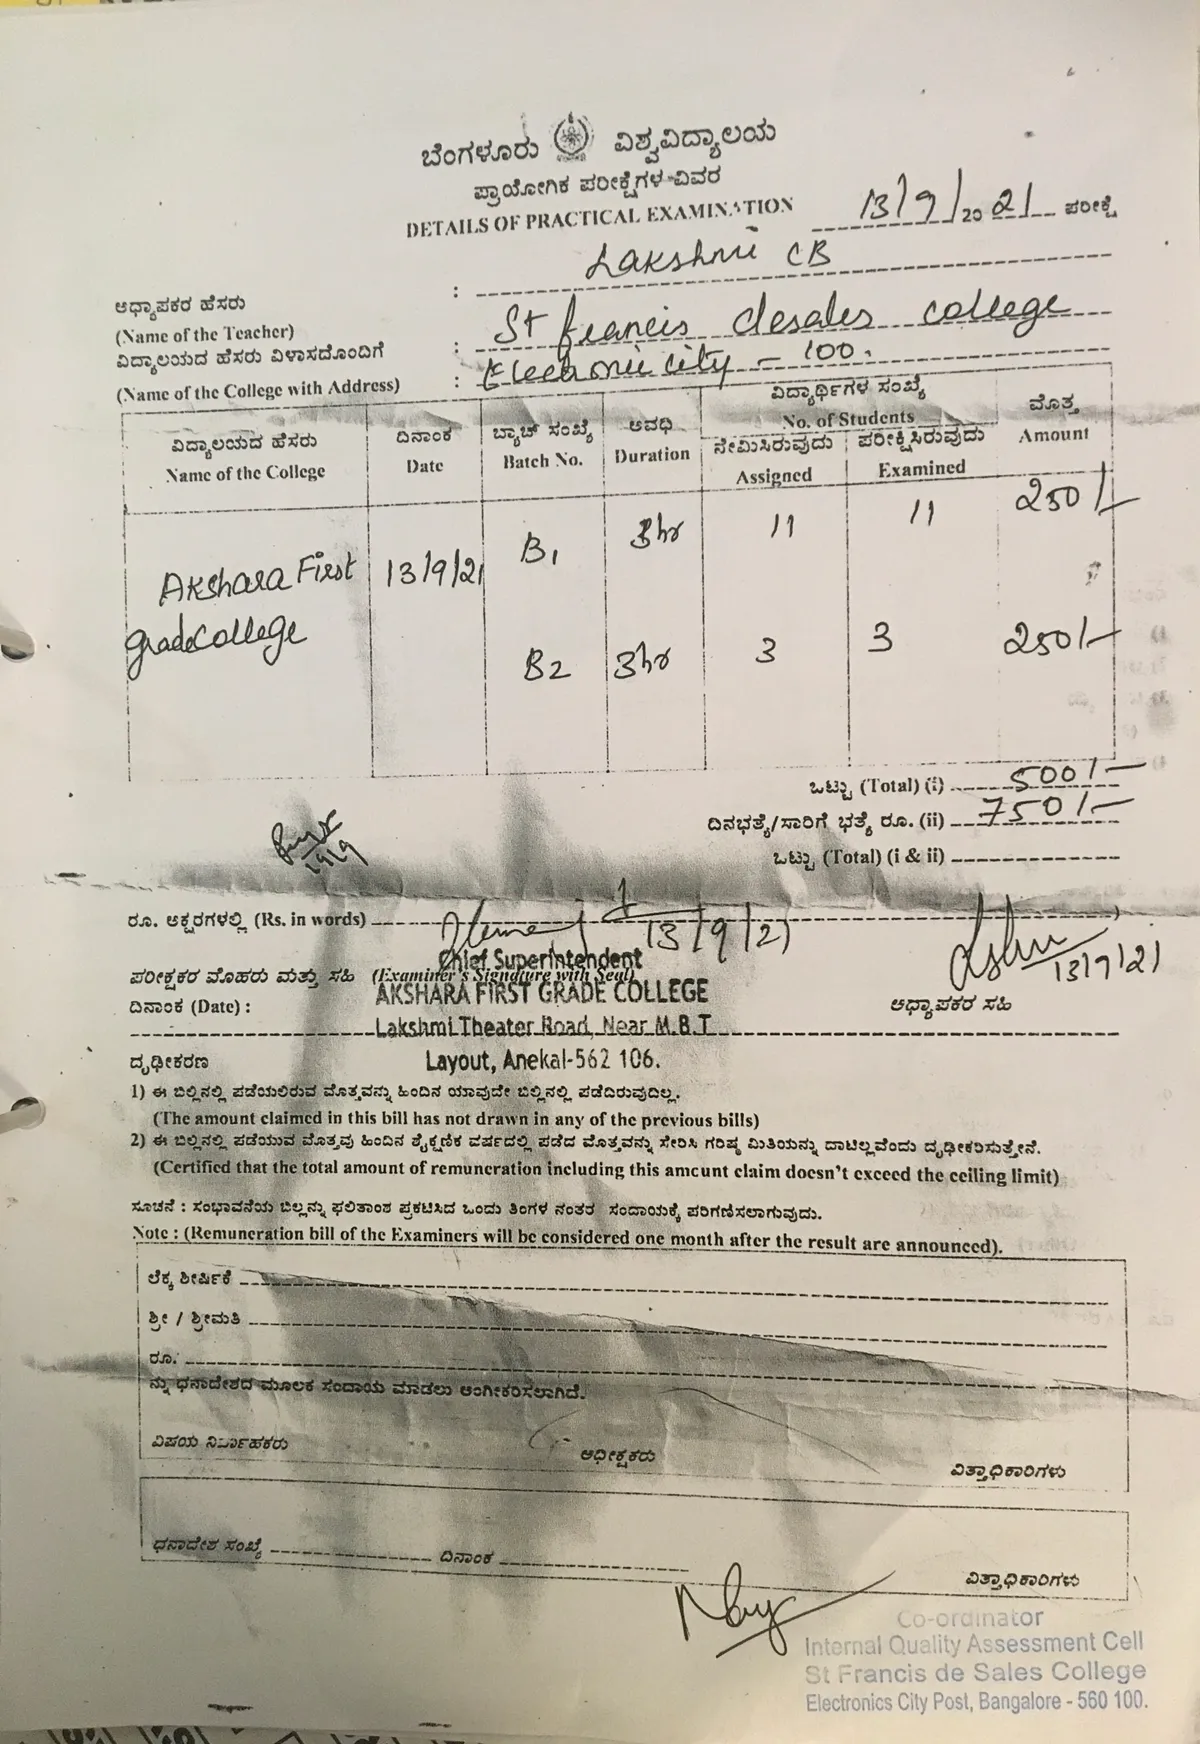 ಬೆಂಗಳೂರು ವಿಶ್ವವಿದ್ಯಾಲಯ
ಪ್ರಾಯೋಗಿಕ ಪರೀಕ್ಷೆಗಳ ವಿವರ
DETAILS OF PRACTICAL EXAMINATION 13/9/2021 ಪರೀಕ್ಷೆ
ಅಧ್ಯಾಪಕರ ಹೆಸರು : Lakshmi CB
(Name of the Teacher)
ವಿದ್ಯಾಲಯದ ಹೆಸರು ವಿಳಾಸದೊಂದಿಗೆ : St francis desales college
(Name of the College with Address) : Electronic city - 100.
ವಿದ್ಯಾಲಯದ ಹೆಸರು ದಿನಾಂಕ ಬ್ಯಾಚ್ ಸಂಖ್ಯೆ ಅವಧಿ ವಿದ್ಯಾರ್ಥಿಗಳ ಸಂಖ್ಯೆ ಮೊತ್ತ
Name of the College Date Batch No. Duration No. of Students Amount
ನೇಮಿಸಿರುವುದು ಪರೀಕ್ಷಿಸಿರುವುದು
Assigned Examined
Akshara First 13/9/21 B1 3hr 11 11 250/-
grade college B2 3hr 3 3 250/-
ಒಟ್ಟು (Total) (i) 500/-
ದಿನಭತ್ಯೆ/ಸಾರಿಗೆ ಭತ್ಯೆ ರೂ. (ii) 750/-
ಒಟ್ಟು (Total) (i & ii)
ರೂ. ಅಕ್ಷರಗಳಲ್ಲಿ (Rs. in words)
13/9/21
13/9/21
Chief Superintendent
ಪರೀಕ್ಷಕರ ಮೊಹರು ಮತ್ತು ಸಹಿ (Examiner's Signature with Seal)
AKSHARA FIRST GRADE COLLEGE
ದಿನಾಂಕ (Date) : ಅಧ್ಯಾಪಕರ ಸಹಿ
Lakshmi Theater Road, Near M.B.T
Layout, Anekal-562 106.
ದೃಢೀಕರಣ
1) ಈ ಬಿಲ್ಲಿನಲ್ಲಿ ಪಡೆಯಲಿರುವ ಮೊತ್ತವನ್ನು ಹಿಂದಿನ ಯಾವುದೇ ಬಿಲ್ಲಿನಲ್ಲಿ ಪಡೆದಿರುವುದಿಲ್ಲ.
(The amount claimed in this bill has not drawn in any of the previous bills)
2) ಈ ಬಿಲ್ಲಿನಲ್ಲಿ ಪಡೆಯುವ ಮೊತ್ತವು ಹಿಂದಿನ ಶೈಕ್ಷಣಿಕ ವರ್ಷದಲ್ಲಿ ಪಡೆದ ಮೊತ್ತವನ್ನು ಸೇರಿಸಿ ಗರಿಷ್ಠ ಮಿತಿಯನ್ನು ದಾಟಿಲ್ಲವೆಂದು ದೃಢೀಕರಿಸುತ್ತೇನೆ.
(Certified that the total amount of remuneration including this amount claim doesn't exceed the ceiling limit)
ಸೂಚನೆ : ಸಂಭಾವನೆಯ ಬಿಲ್ಲನ್ನು ಫಲಿತಾಂಶ ಪ್ರಕಟಿಸಿದ ಒಂದು ತಿಂಗಳ ನಂತರ ಸಂದಾಯಕ್ಕೆ ಪರಿಗಣಿಸಲಾಗುವುದು.
Note : (Remuneration bill of the Examiners will be considered one month after the result are announced).
ಲೆಕ್ಕ ಶೀರ್ಷಿಕೆ
ಶ್ರೀ / ಶ್ರೀಮತಿ
ರೂ.
ನ್ನು ಧನಾದೇಶದ ಮೂಲಕ ಸಂದಾಯ ಮಾಡಲು ಅಂಗೀಕರಿಸಲಾಗಿದೆ.
ವಿಷಯ ನಿರ್ವಾಹಕರು ಅಧೀಕ್ಷಕರು ವಿತ್ತಾಧಿಕಾರಿಗಳು
ಧನಾದೇಶ ಸಂಖ್ಯೆ ದಿನಾಂಕ ವಿತ್ತಾಧಿಕಾರಿಗಳು
Co-ordinator
Internal Quality Assessment Cell
St Francis de Sales College
Electronics City Post, Bangalore - 560 100.